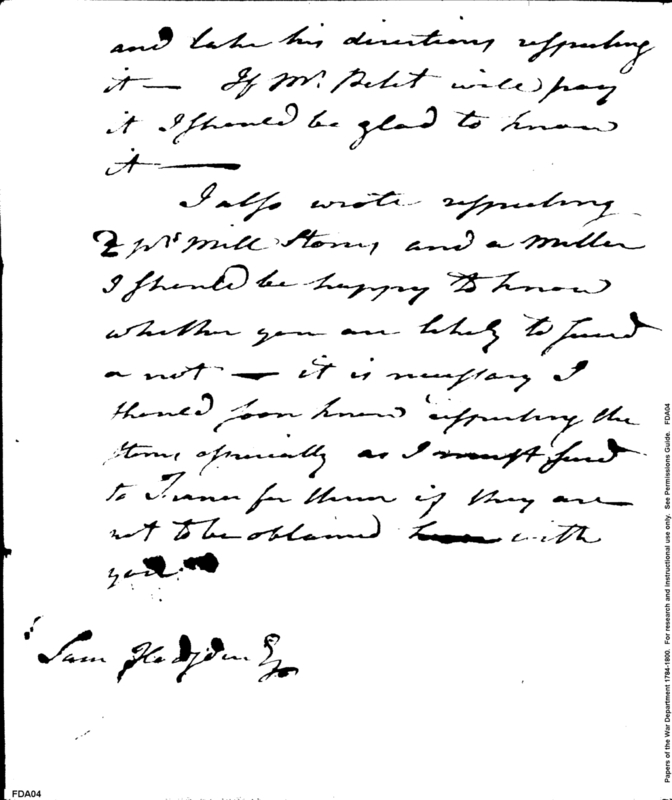 and take his directions respecting
it — If Mr. Petit will pay
it I should be glad to know
it —
I also wrote respecting
2 prs Mill Stones and a Miller
I should be happy to know
whether you are likely to succeed
or not — it is necessary I
should soon know respecting the
stones especially as I must send
to France for them if they are
not to be obtained with
you.
Sam Hodgdon Esq
Papers of the War Department 1784-1800. For research and instructional use only. See Permissions Guide. FDA04
FDA04